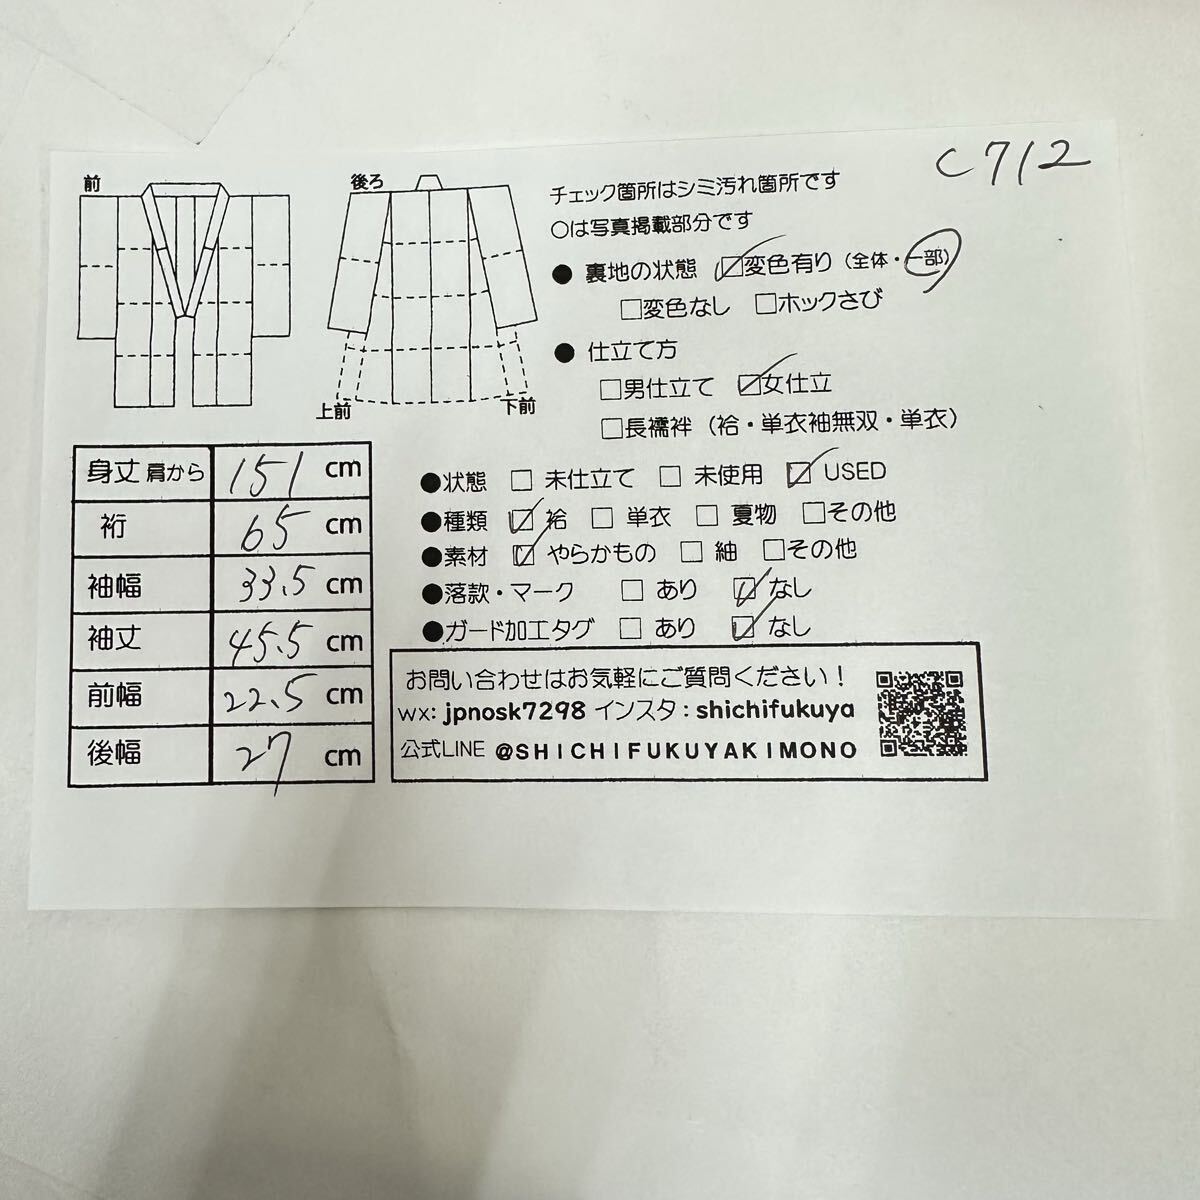 C712
前
後ろ
上前
下前
チェック箇所はシミ汚れ箇所です
○は写真掲載部分です
● 裏地の状態 ☑変色有り（全体・一部）
□変色なし □ホックさび
● 仕立て方
□男仕立て ☑女仕立
□長襦袢（袷・単衣袖無双・単衣）
身丈 肩から 151 cm
裄 65 cm
袖幅 33.5 cm
袖丈 45.5 cm
前幅 22.5 cm
後幅 27 cm
●状態 □ 未仕立て □ 未使用 ☑ USED
●種類 ☑ 袷 □ 単衣 □ 夏物 □その他
●素材 ☑ やらかもの □ 紬 □その他
●落款・マーク □ あり ☑ なし
●ガード加工タグ □ あり ☑ なし
お問い合わせはお気軽にご質問ください！
wx: jpnosk7298 インスタ：shichifukuya
公式LINE @SHICHIFUKUYAKIMONO